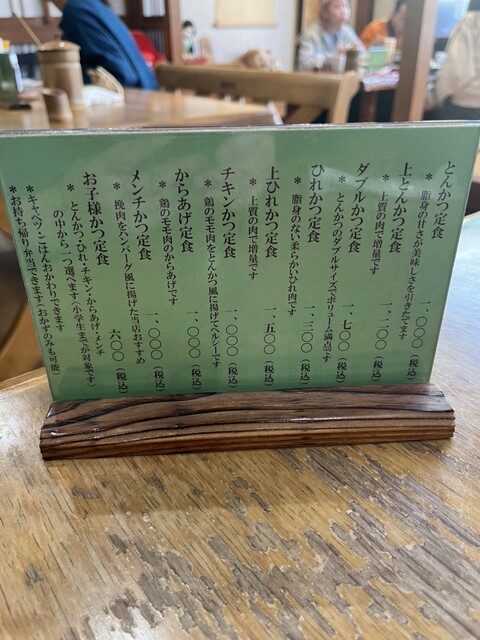 とんかつ定食 一、〇〇〇(税込)
＊脂身の甘さが美味しさを引きたてます
上とんかつ定食 一、二〇〇(税込)
＊上質の肉で増量です
ダブルかつ定食 一、七〇〇(税込)
＊とんかつのダブルサイズでボリューム満点です
ひれかつ定食 一、三〇〇(税込)
＊脂身のない柔らかいひれ肉です
上ひれかつ定食 一、五〇〇(税込)
＊上質の肉で増量です
チキンかつ定食 一、〇〇〇(税込)
＊鶏のモモ肉をとんかつ風に揚げてヘルシーです
からあげ定食 一、〇〇〇(税込)
＊鶏のモモ肉のからあげです
メンチかつ定食 一、〇〇〇(税込)
＊挽肉をハンバーグ風に揚げた当店おすすめ
お子様かつ定食 六〇〇(税込)
＊とんかつ・ひれ・チキン・からあげ・メンチ
の中から一つ選べます(小学生までが対象です)
＊キャベツ・ごはんおかわりできます
＊お持ち帰り弁当できます(おかずのみも可能)